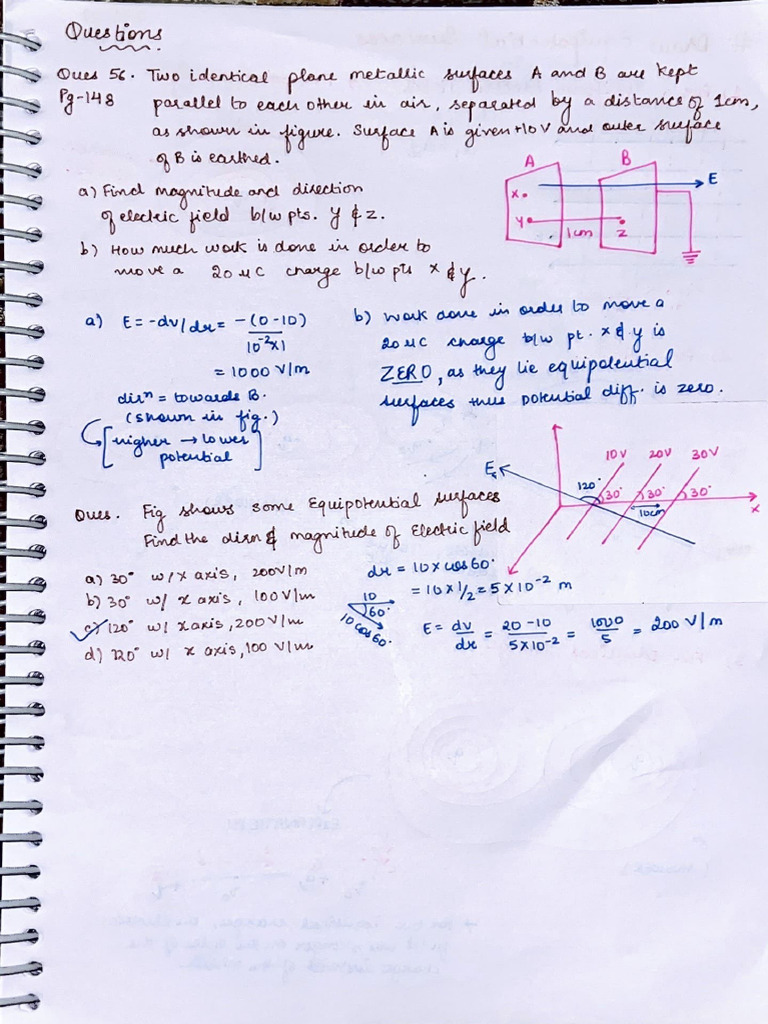 Questions
Ques 56. Two identical plane metallic surfaces A and B are kept
Pg-148 parallel to each other in air, separated by a distance of 1cm,
as shown in figure. Surface A is given +10 V and outer surface
of B is earthed.
A B
E
x.
y
z
1cm
a) Find magnitude and direction
of electric field b/w pts. y & z.
b) How much work is done in order to
move a 20 μC charge b/w pts x & y.
a) E = -dv/dr = -(0-10)
10⁻²x1
= 1000 V/m
dirⁿ = towards B.
(shown in fig.)
[higher → lower
potential]
b) Work done in order to move a
20 μC charge b/w pt. x & y is
ZERO, as they lie equipotential
surfaces thus potential diff. is zero.
10V 20V 30V
E
120° 30° 30° 30°
10cm
x
Ques. Fig shows some Equipotential surfaces
Find the dirn & magnitude of Electric field
a) 30° w/x axis, 200V/m
b) 30° w/ x axis, 100 V/m
c) 120° w/ x axis, 200 V/m
d) 120° w/ x axis, 100 V/m
dr = 10 x cos 60°
= 10 x 1/2 = 5 x 10⁻² m
10
60°
10 cos 60°
E = dv/dr = 20-10/5x10⁻² = 1000/5 = 200 V/m